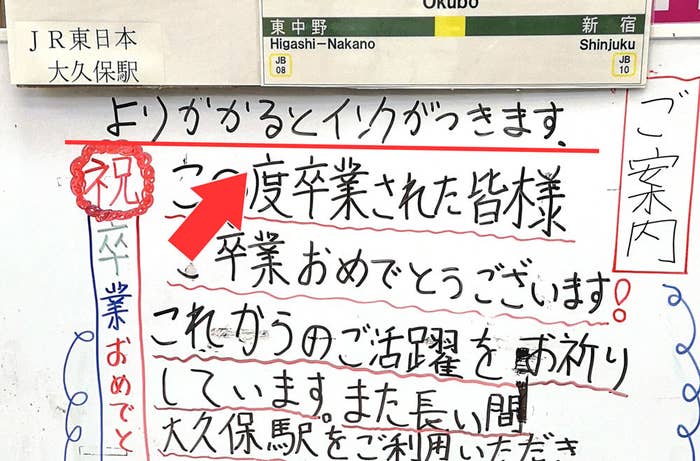 Okubo
JR東日本
大久保駅
東中野
Higashi-Nakano
JB
08
新宿
Shinjuku
JB
10
よりかかるとインクがつきます.
ご案内
祝
卒業おめでと
この度卒業された皆様
ご卒業おめでとうございます!
これからのご活躍をお祈り
しています。また長い間
大久保駅をご利用いただき